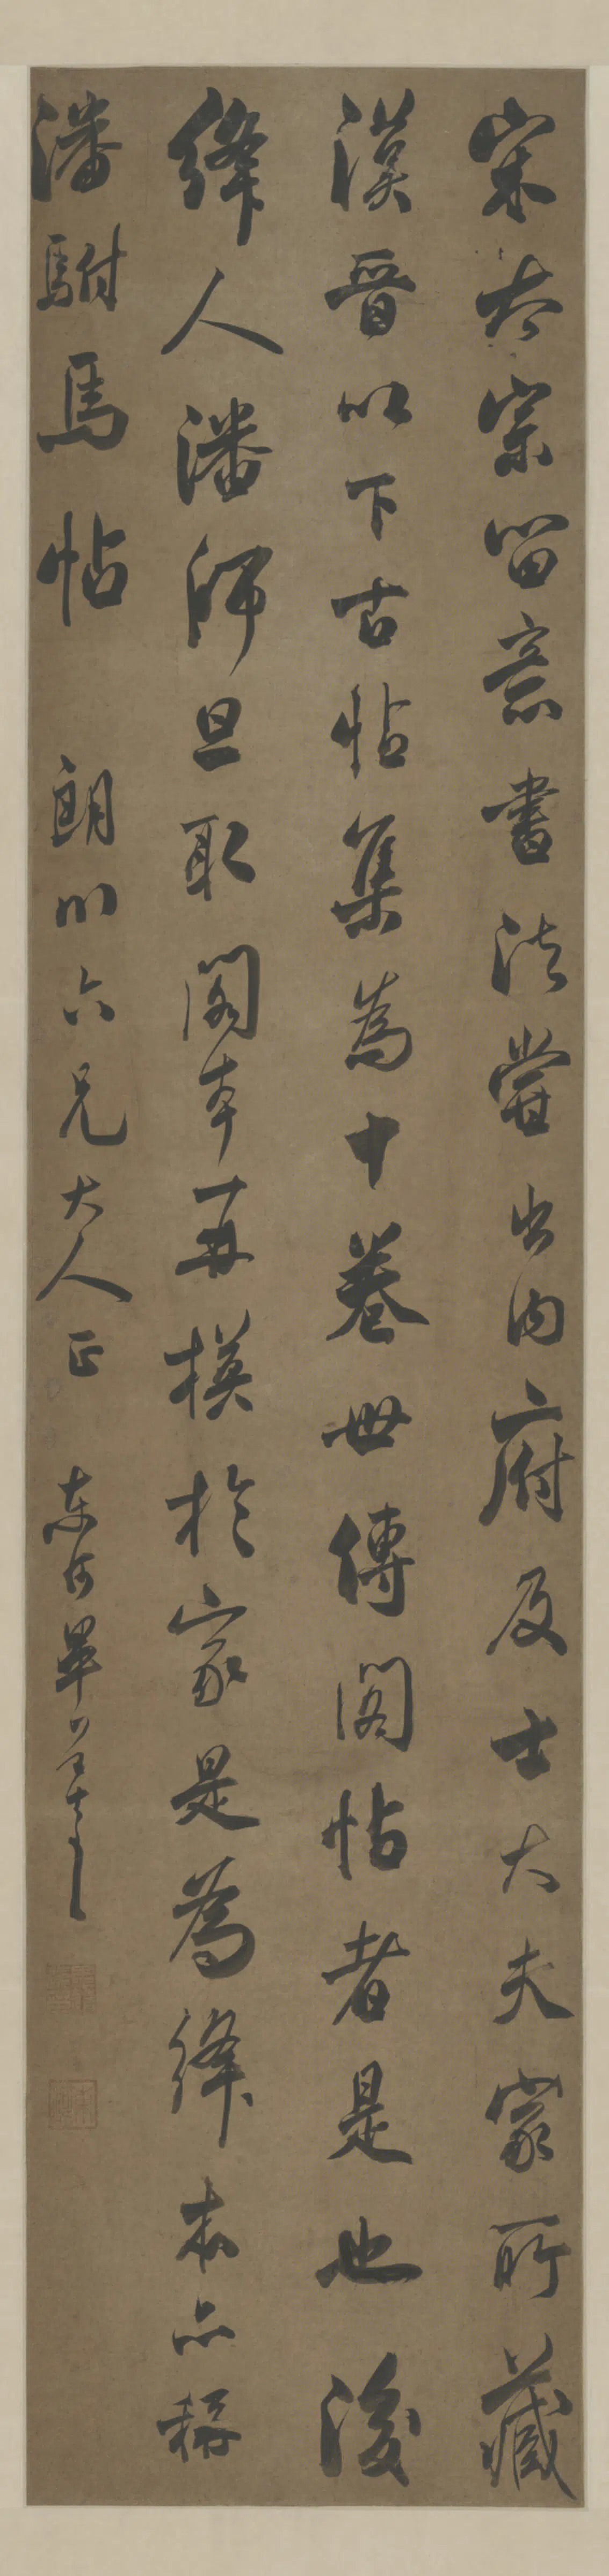 宋太宗留意書法嘗出內府及士大夫家所藏
漢晉以下古帖集為十卷世傳閣帖者是也後
絳人潘師旦取閣本再摸於家是為絳本亦稱
潘駙馬帖 朗川六兄大人正 東河畢